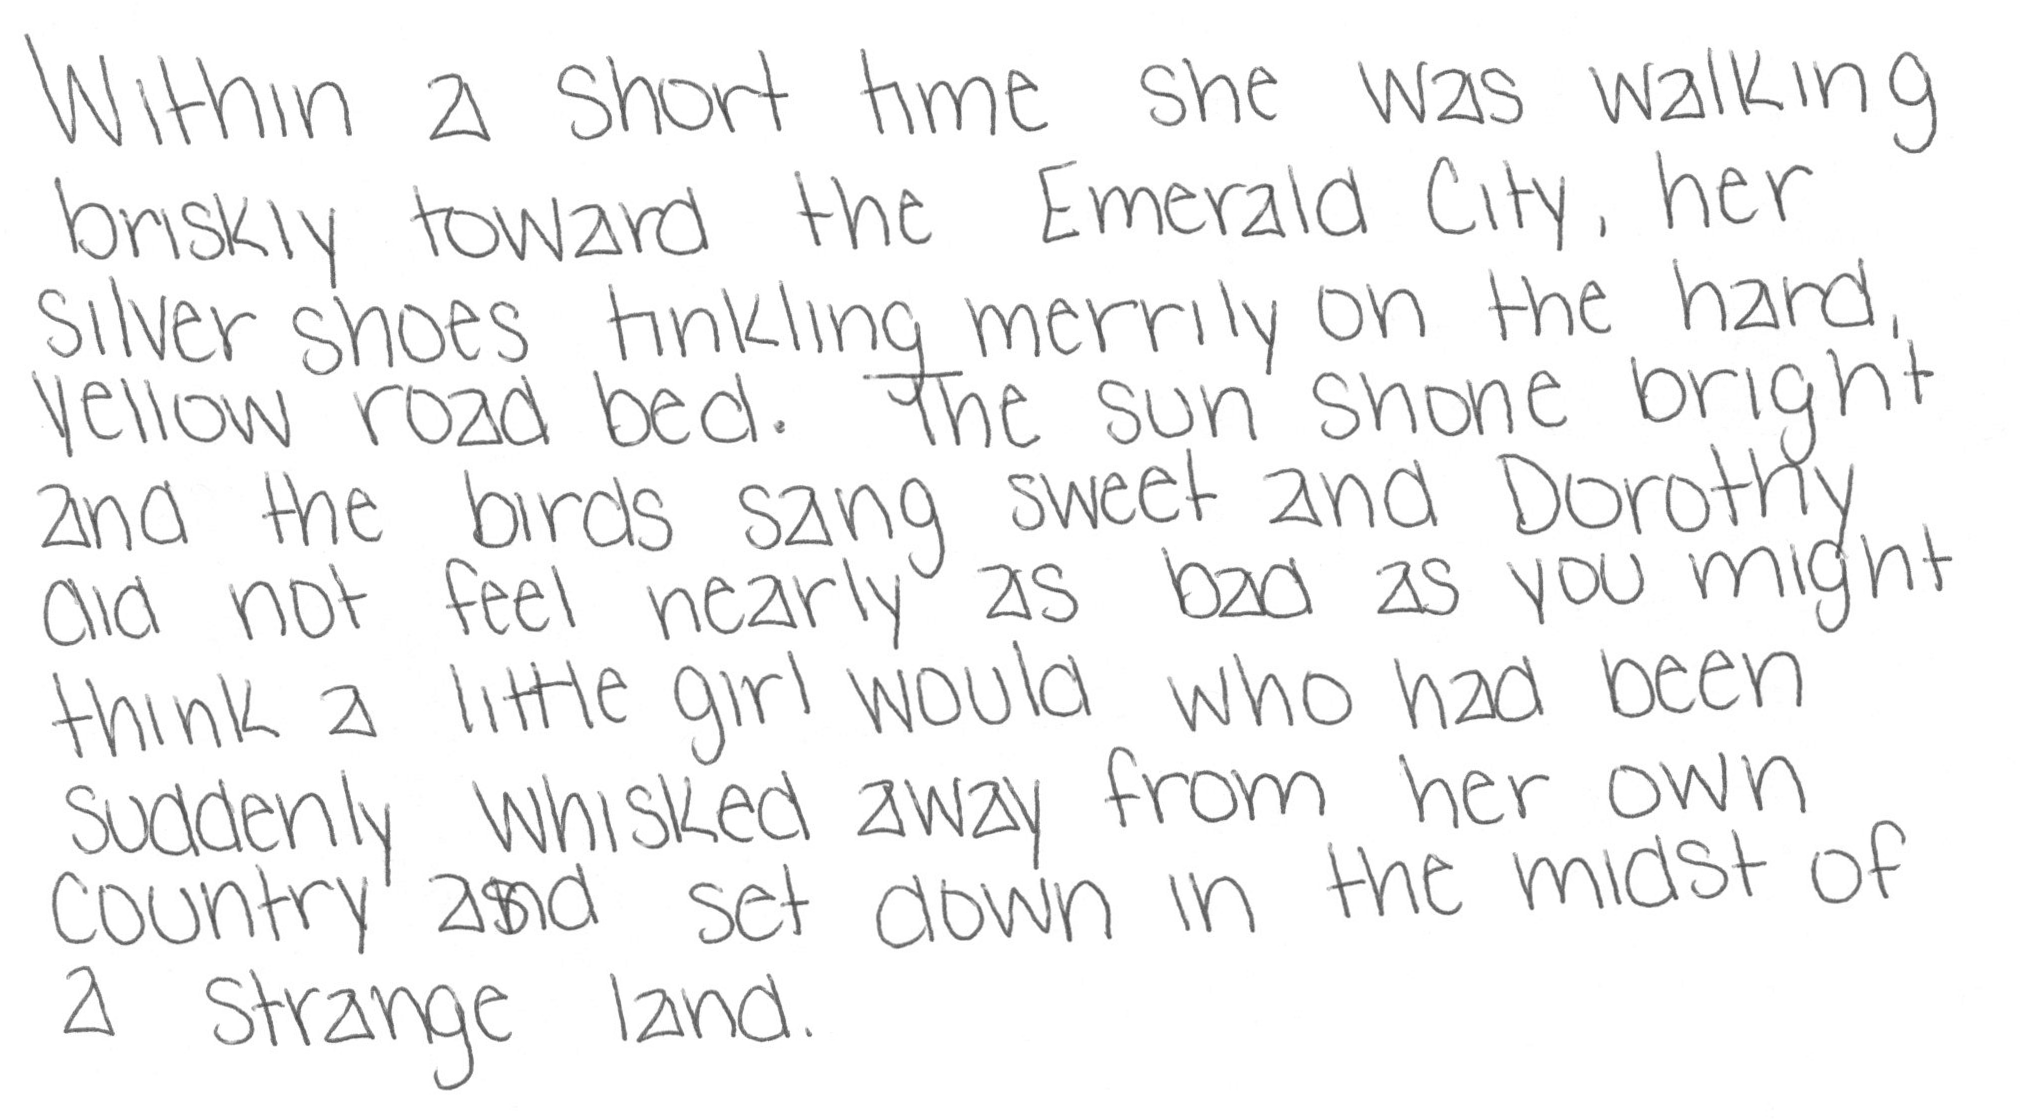 Within a short time she was walking
briskly toward the Emerald City, her
Silver shoes tinkling merrily on the hard,
yellow road bed. The sun shone bright
and the birds sang sweet and Dorothy
did not feel nearly as bad as you might
think a little girl would who had been
suddenly whisked away from her own
country and set down in the midst of
a strange land.